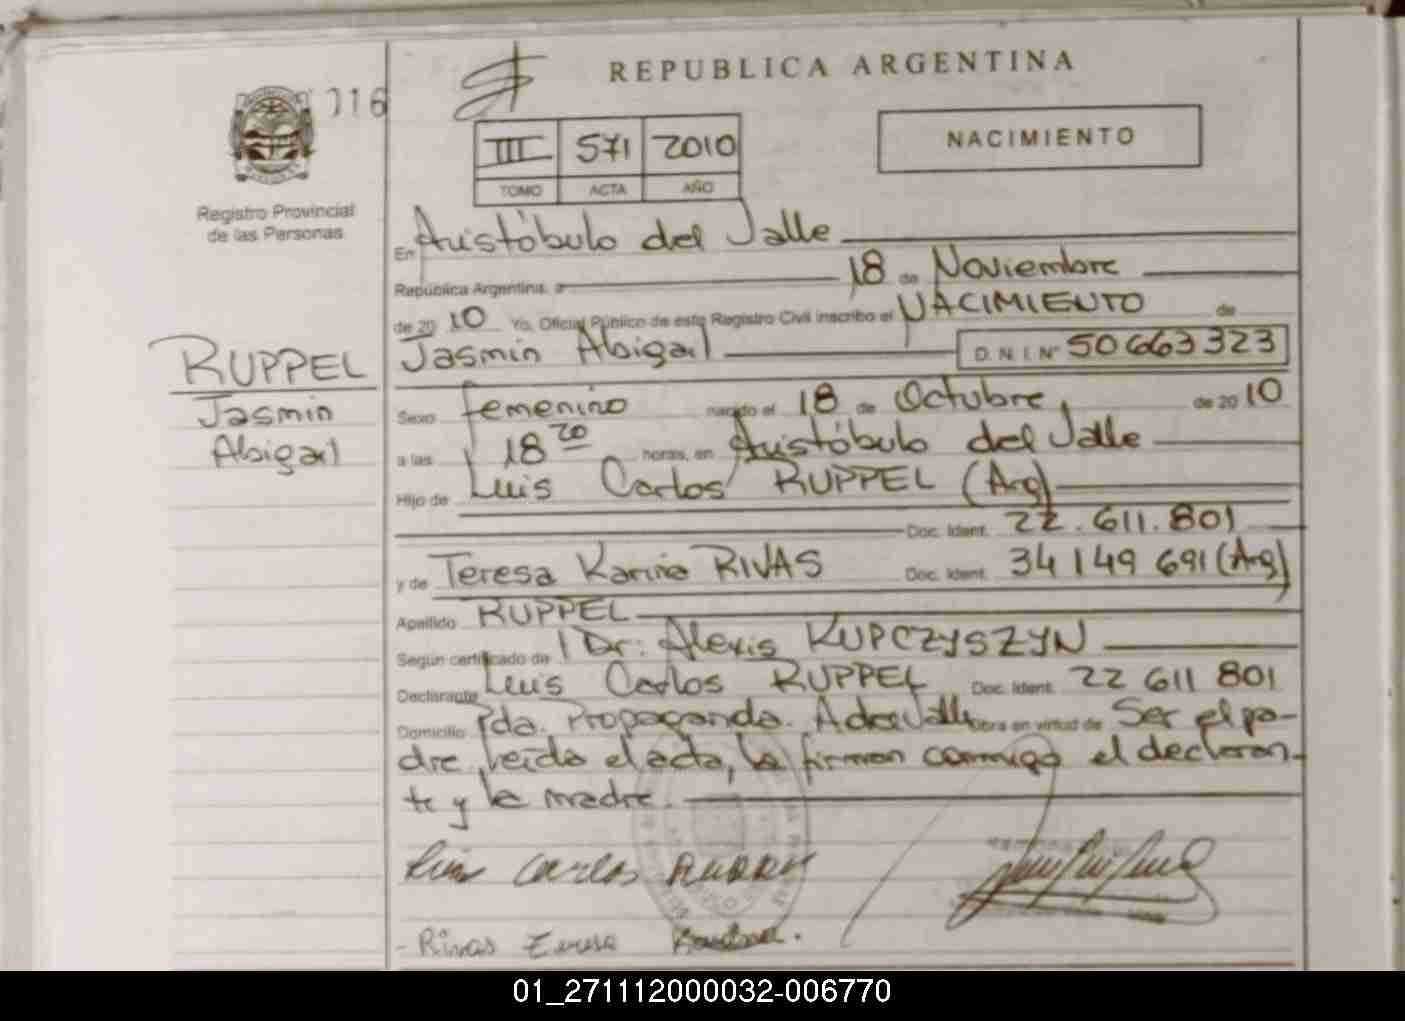 REPUBLICA ARGENTINA
016
NACIMIENTO
III 571 2010
TOMO ACTA AÑO
Registro Provincial
de las Personas
En Aristóbulo del Valle
República Argentina, a 18 de Noviembre
de 2010 Yo, Oficial Público de este Registro Civil inscribo el NACIMIENTO de
RUPPEL
Jasmin
Abigail
Jasmin Abigail D.N.I. Nº 50663323
Sexo femenino nacido el 18 de Octubre de 2010
a las 18 20 horas, en Aristóbulo del Valle
Hijo de Luis Carlos RUPPEL (Arg)
Doc. Ident. 22.611.801
y de Teresa Karina RIVAS Doc. Ident. 34149691 (Arg)
Apellido RUPPEL
Según certificado de Dr: Alexis KUPCZYSZYN
Declarante Luis Carlos RUPPEL Doc. Ident. 22 611 801
Domicilio Pda. Propaganda. A del Valle obra en virtud de Ser el pa-
dre, leída el acta, la firman conmigo el declaran-
te y la madre.
Luis Carlos Ruppel
Rivas Teresa
01_271112000032-006770